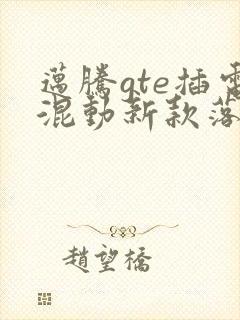 邁騰gte插電
混動新款落
趙望橋